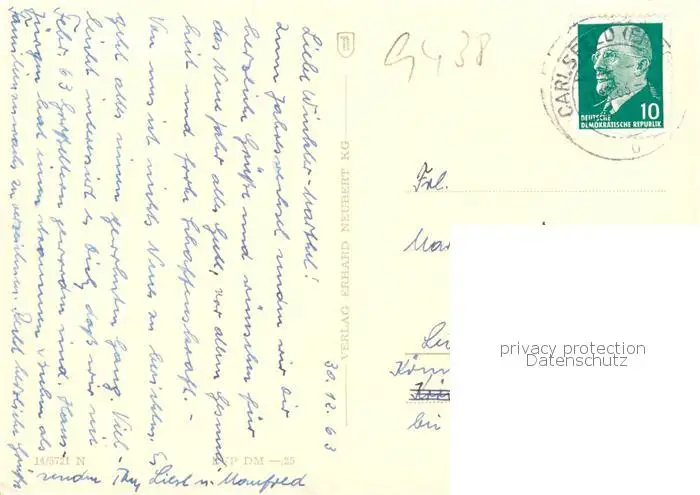 30.12.63
Liebe Winkler-Martel!
Zum Jahreswechsel senden wir Dir
herzliche Grüße und wünschen für
das Neue Jahr alles Gute, vor allem Gesund-
heit und frohe Schaffenskraft. -
Von uns ist nichts Neues zu berichten. Es
geht alles seinen gewohnten Gang. Viel-
leicht interessiert es Dich, daß wir seit
Febr. 63 Großeltern geworden sind. Hans-
Jürgen hat einen strammen als
Familienzuwachs zu verzeichnen. Recht herzliche Grüße
senden Liesl u. Manfred
14/5721 N
EVP DM -,25
VERLAG ERHARD NEUBERT KG
G 438
CARLSFELD
10
DEUTSCHE
DEMOKRATISCHE REPUBLIK
Frl.
Mar
Köni
bei
privacy protection
Datenschutz